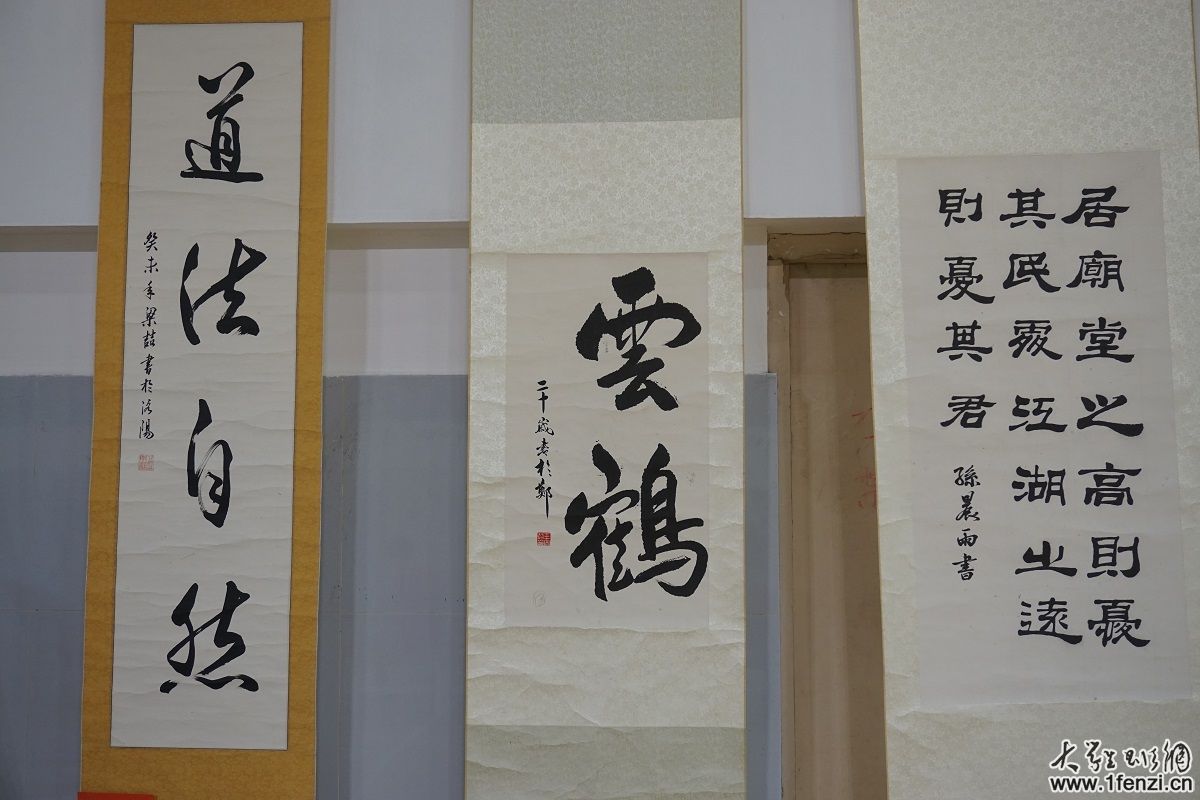 道法自然
癸未年梁喆書於洛陽
雲鶴
二十歲書於鄭
居廟堂之高則憂
其民處江湖之遠
則憂其君 孫晨雨書
www.1fenzi.cn